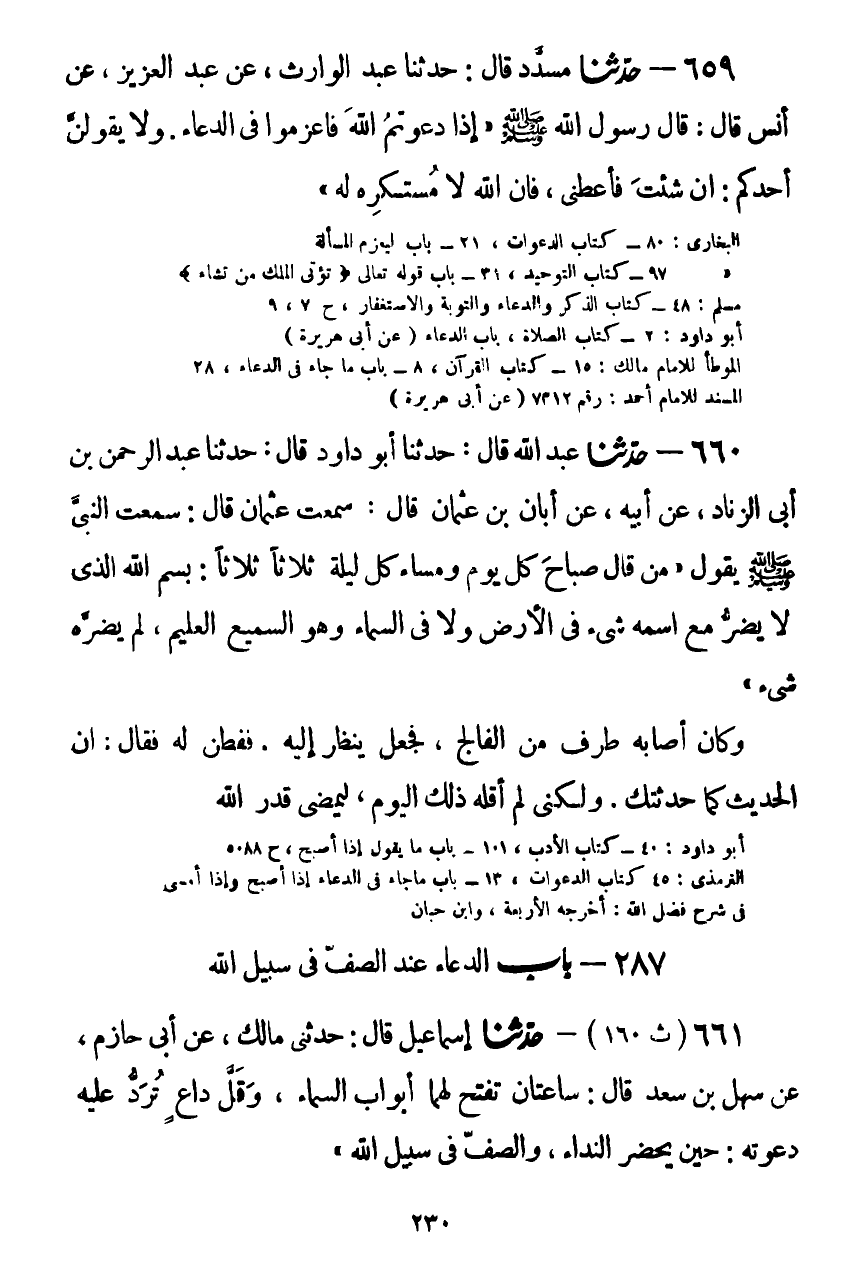 ٦٥٩ – حدّثنا مسدَّد قال : حدثنا عبد الوارث ، عن عبد العزيز ، عن
أنس قال : قال رسول الله ﷺ « إذا دعوتمُ اللهَ فاعزموا فى الدعاء . ولا يقولنَّ
أحدكم : ان شئتَ فأعطنى ، فان الله لا مُستسكرِه له »
البخارى : ٨٠ – كتاب الدعوات ، ٢١ – باب ليعزم المسألة
» ٩٧ – كتاب التوحيد ، ٣١ – باب قوله تعالى ﴿ تؤتى الملك من تشاء ﴾
مسلم : ٤٨ – كتاب الذكر والدعاء والتوبة والاستغفار ، ح ٧ ، ٩
أبو داود : ٢ – كتاب الصلاة ، باب الدعاء ( عن أبى هريرة )
الموطأ للامام مالك : ١٥ – كتاب القرآن ، ٨ – باب ما جاء فى الدعاء ، ٢٨
المسند للامام أحمد : رقم ٧٣١٢ ( عن أبى هريرة )
٦٦٠ – حدّثنا عبد الله قال : حدثنا أبو داود قال : حدثنا عبد الرحمن بن
أبى الزناد ، عن أبيه ، عن أبان بن عثمان قال : سمعت عثمان قال : سمعت النبىَّ
ﷺ يقول « من قال صباحَ كل يوم ومساء كل ليلة ثلاثاً ثلاثاً : بسم الله الذى
لا يضرُّ مع اسمه شىء فى الأرض ولا فى السماء وهو السميع العليم ، لم يضرَّه
شىء »
وكان أصابه طرف من الفالج ، فجعل ينظار إليه . ففطن له فقال : ان
الحديث كما حدثتك . ولكنى لم أقله ذلك اليوم ، ليمضى قدر الله
أبو داود : ٤٠ – كتاب الأدب ، ١٠١ – باب ما يقول إذا أصبح ، ح ٥٠٨٨
الترمذى : ٤٥ كتاب الدعوات ، ١٣ – باب ماجاء فى الدعاء إذا أصبح وإذا أمسى
فى شرح فضل الله : أخرجه الأربعة ، وابن حبان
٢٨٧ – باب الدعاء عند الصفّ فى سبيل الله
٦٦١ ( ث ١٦٠ ) – حدّثنا إسماعيل قال : حدثنى مالك ، عن أبى حازم ،
عن سهل بن سعد قال : ساعتان تفتح لهما أبواب السماء ، وَقَلَّ داعٍ تُرَدُّ عليه
دعوته : حين يحضر النداء ، والصفّ فى سبيل الله »
٢٣٠